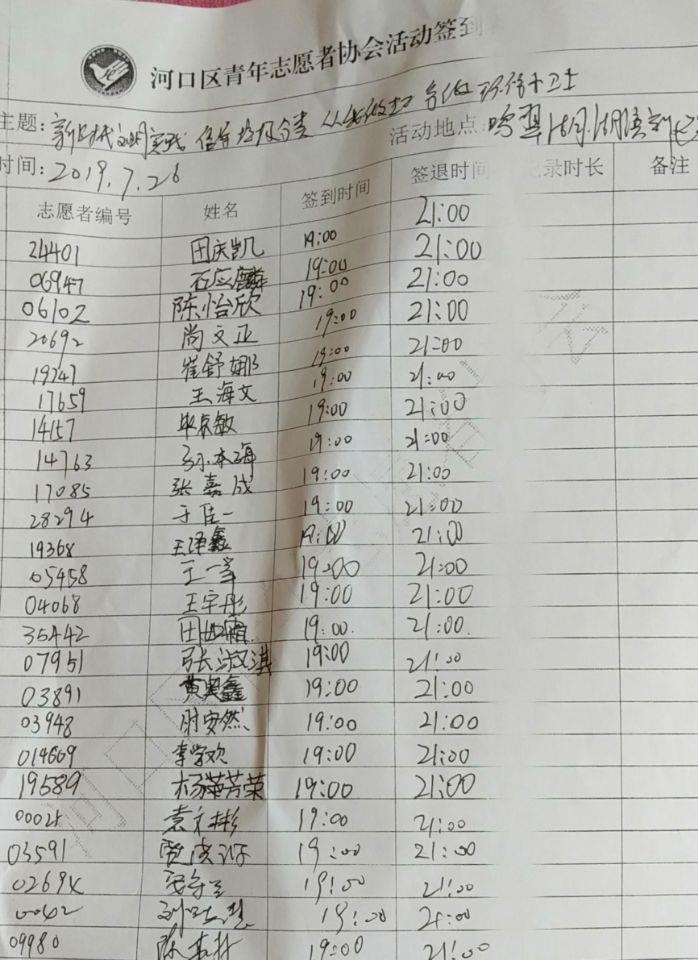 河口区青年志愿者协会活动签到
主题: 新时代文明实践 倡导垃圾分类 从我做起 争做环保小卫士 活动地点: 鸣翠湖
时间: 2019.7.26
志愿者编号 姓名 签到时间 签退时间 记录时长 备注
21:00
24401 田庆凯 19:00 21:00
06947 石应麟 19:00 21:00
06102 陈怡欣 19:00 21:00
20692 尚文正 19:00 21:00
19747 崔舒娜 19:00 21:00
17659 王海文 19:00 21:00
14157 毕京敏 19:00 21:00
14763 孙本海 19:00 21:00
17085 张嘉成 19:00 21:00
28294 于佳一 19:00 21:00
19368 王泽鑫 19:00 21:00
05458 王一 19:00 21:00
04068 王宇彤 19:00 21:00
35442 田 19:00 21:00
07951 张淑淇 19:00 21:00
03891 黄奥鑫 19:00 21:00
03948 时安然 19:00 21:00
014609 李学欢 19:00 21:00
19589 杨芳荣 19:00 21:00
0002 袁文彬 19:00 21:00
03591 19:00 21:00
0269 19:00 21:00
19:00 21:00
09980 陈 19:00 21:00